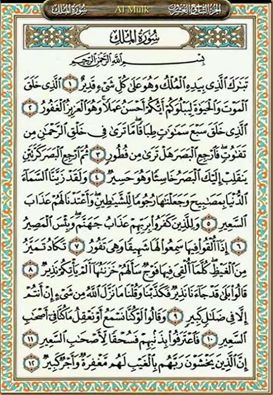 Al Mulk
سورة الملك
بسم الله الرحمن الرحيم
تبارك الذي بيده الملك وهو على كل شيء قدير ١ الذي خلق
الموت والحياة ليبلوكم أيكم أحسن عملا وهو العزيز الغفور ٢
الذي خلق سبع سماوات طباقا ما ترى في خلق الرحمن من
تفاوت فارجع البصر هل ترى من فطور ٣ ثم ارجع البصر كرتين
ينقلب إليك البصر خاسئا وهو حسير ٤ ولقد زينا السماء
الدنيا بمصابيح وجعلناها رجوما للشياطين وأعتدنا لهم عذاب
السعير ٥ وللذين كفروا بربهم عذاب جهنم وبئس المصير
٦ إذا ألقوا فيها سمعوا لها شهيقا وهي تفور ٧ تكاد تميز
من الغيظ كلما ألقي فيها فوج سألهم خزنتها ألم يأتكم نذير ٨
قالوا بلى قد جاءنا نذير فكذبنا وقلنا ما نزل الله من شيء إن أنتم
إلا في ضلال كبير ٩ وقالوا لو كنا نسمع أو نعقل ما كنا في أصحاب
السعير ١٠ فاعترفوا بذنبهم فسحقا لأصحاب السعير ١١
إن الذين يخشون ربهم بالغيب لهم مغفرة وأجر كبير ١٢